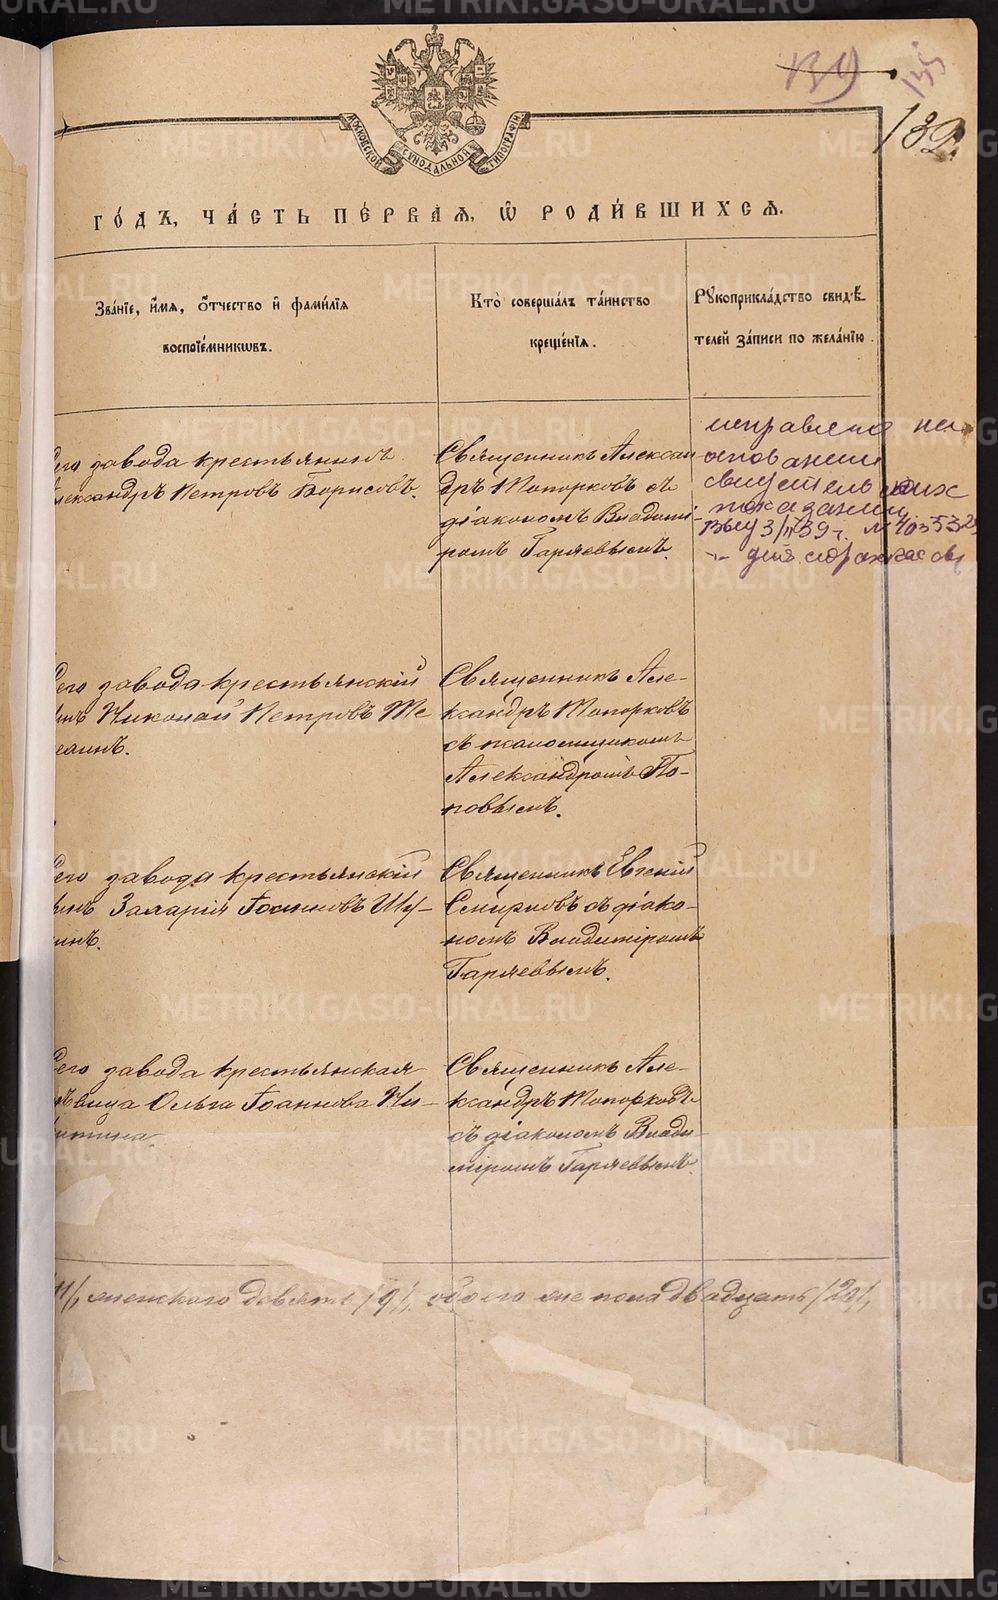 139
135
132.
МОСКОВСКОЙ СѴНОДАЛЬНОЙ ТИПОГРАФІИ
ГО́ДЪ, ЧА́СТЬ ПЕ́РВАЯ, Ѽ РОДИ́ВШИХСЯ.
Зва́нїе, и҆́мя, ѻ҆́тчество и҆ фами́лїя
воспрїе́мникѡвъ.
Кто̀ соверша́лъ та́инство
креще́нїя.
Рꙋкоприкла́дство свидѣ́-
телей за́писи по жела́нїю.
его завода крестьянинъ
лександръ Петровъ Борисовъ.
Священникъ Алексан
дръ Топорковъ съ
діакономъ Владимі
ромъ Гаряевымъ.
исправлено на
основании
свидетельских
показаний
3/II 39 г. № 403532
его завода крестьянскій
сынъ Николай Петровъ Те
Священникъ Але-
ксандръ Топорковъ
съ псаломщикомъ
Александромъ По-
повымъ.
его завода крестьянскій
сынъ Захарія Іоанновъ Шу-
инъ.
Священникъ Евгеній
Смирновъ съ діако-
номъ Владиміромъ
Гаряевымъ.
его завода крестьянская
дѣвица Ольга Іоаннова Ни-
китина.
Священникъ Але-
ксандръ Топорковъ
съ діакономъ Влади
міромъ Гаряевымъ.
11/, женского девять /9/, обоего же пола двадцать /20/,
METRIKI.GASO-URAL.RU